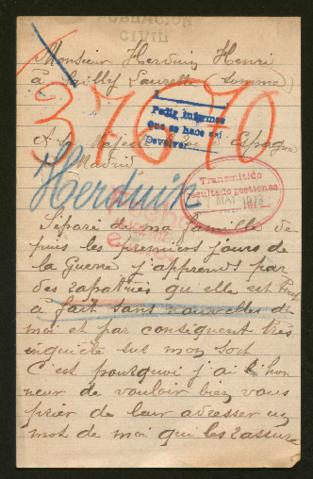 POBLACION
CIVIL
Monsieur Herduin Henri
à Sailly Laurette (Somme)
37670
Pedir informes
Que se hace así
Devolver
A Sa Majesté d'Espagne
Madrid
Herduin
Transmitido
resultado gestiones
MAY 1918
Séparé de ma famille de
puis les premiers jours de
la Guerre j'apprends par
des rapatriés qu'elle est tout
à fait sans nouvelles de
moi et par conséquent très
inquiète sur mon sort
C'est pourquoi j'ai l'hon
neur de vouloir bien vous
prier de leur adresser un
mot de moi qui les rassure